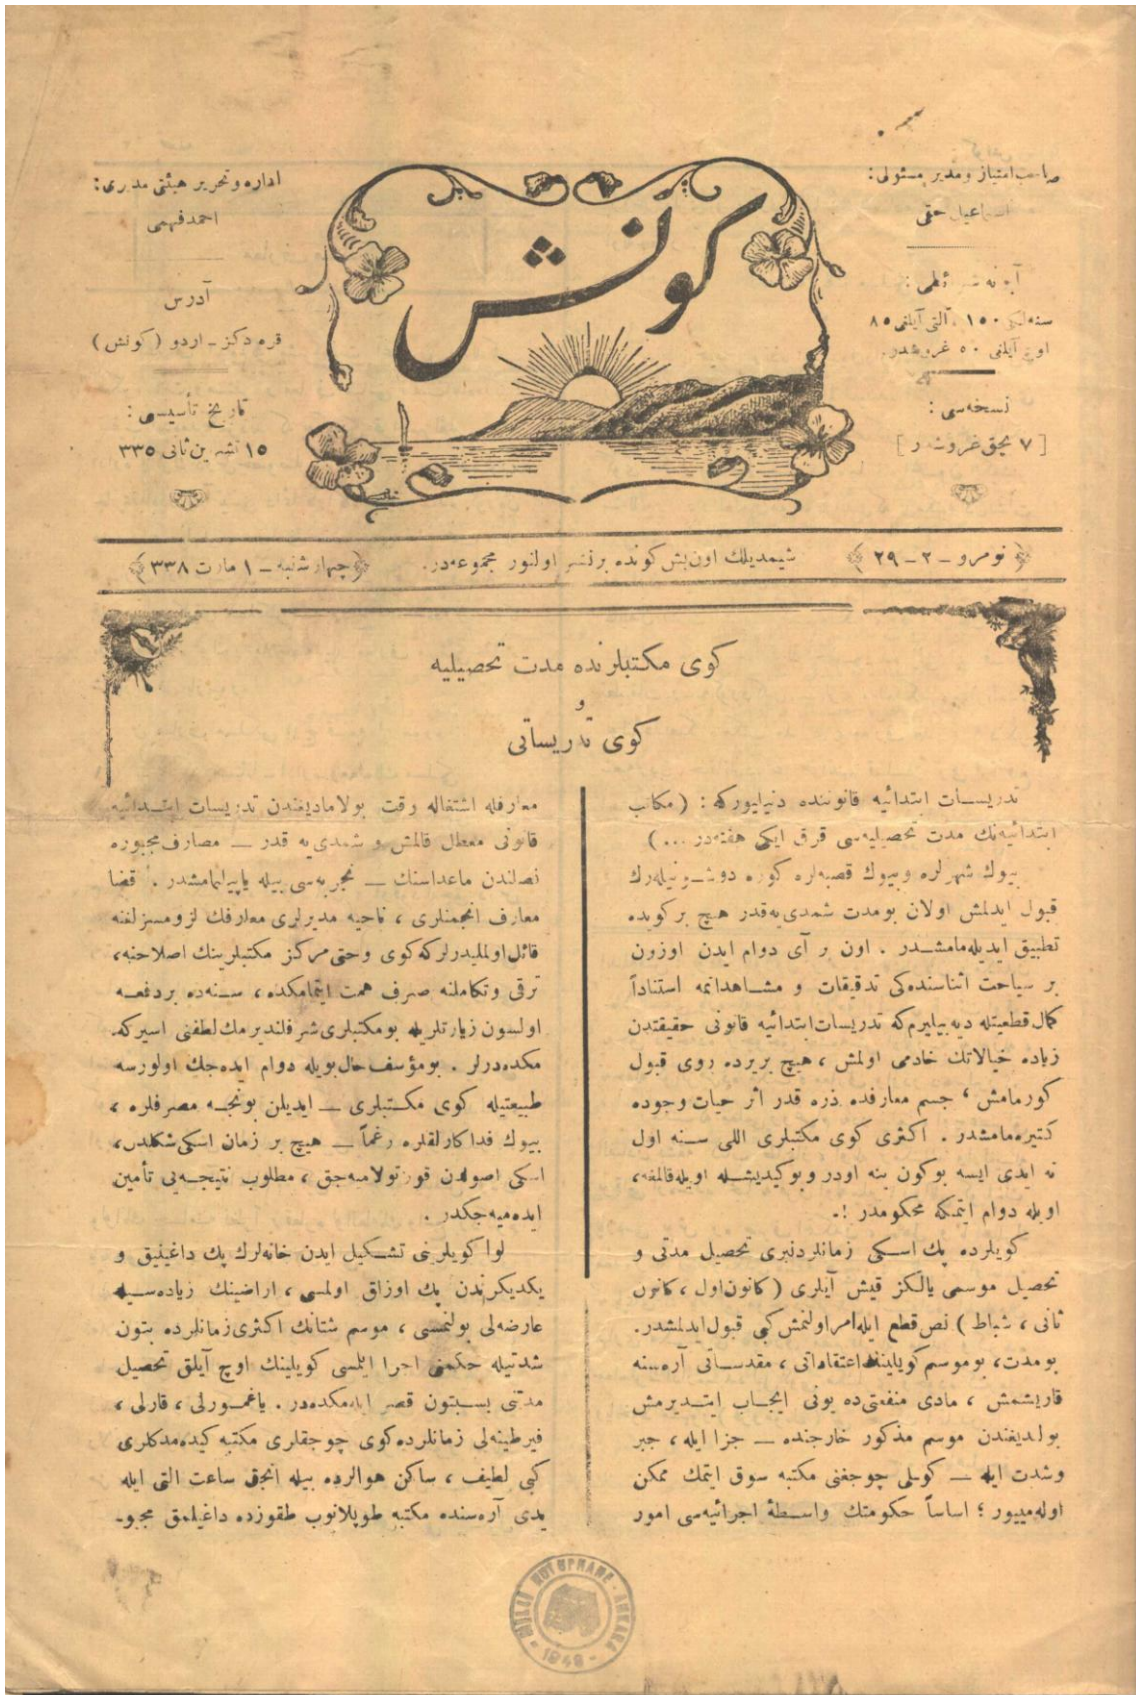 صاحب امتياز و مدير مسئولى:
اسماعيل حقى
آبونه شرائطى:
سنه‌لكى ١٥٠، آلتى آيلغى ٨٥
اوچ آيلغى ٥٠ غروشدر.
نسخه‌سى:
[ ٧ بچق غروشدر ]
كونش
اداره و تحرير هيئتى مديرى:
احمد فهمى
آدرس
قره دكز ـ اردو (كونش)
تاريخ تأسيسى:
١٥ تشرين ثانى ٣٣٥
﴿نومرو ـ ٢ ـ ٢٩﴾ شيمديلك اون بش كونده بر نشر اولنور مجموعه‌در. ﴿چهارشنبه ـ ١ مارت ٣٣٨﴾
كوى مكتبلرنده مدت تحصيليه
و
كوى تدريساتى
تدريسات ابتدائيه قانوننده دنيليوركه: (مكاتب
ابتدائيه‌نك مدت تحصيليه‌سى قرق ايكى هفته‌در ...)
بيوك شهرلره و بيوك قصبه‌لره كوره دوشونيله‌رك
قبول ايدلمش اولان بو مدت شمدى‌يه قدر هيچ بر كويده
تطبيق ايديله‌مامشدر . اون بر آى دوام ايدن اوزون
بر سياحت اثناسنده‌كى تدقيقات و مشاهداتمه استناداً
كمال قطعيتله ديه بيليرم‌كه تدريسات ابتدائيه قانونى حقيقتدن
زياده خيالاتك خادمى اولمش ، هيچ بريرده روى قبول
كورمامش ، جسم معارفده ذره قدر اثر حيات وجوده
كتيره‌مامشدر . اكثرى كوى مكتبلرى اللى سنه اول
نه ايدى ايسه بوكون ينه اودر و بوكيديشله اويله قالمغه،
اويله دوام ايتمكه محكومدر !.
كويلرده پك اسكى زمانلردنبرى تحصيل مدتى و
تحصيل موسمى يالكز قيش آيلرى (كانون اول ، كانون
ثانى ، شباط) نص قطع ايله امر اولنمش كبى قبول ايدلمشدر.
بو مدت، بو موسم كويلينك اعتقاداتى ، مقدساتى آره‌سنه
قاريشمش ، مادى منفعتى ده بونى ايجاب ايتديرمش
بولنديغندن موسم مذكور خارجنده ـ جزا ايله ، جبر
و شدت ايله ـ كويلى چوجغنى مكتبه سوق ايتمك ممكن
اوله‌ميور ؛ اساساً حكومتك واسطهٔ اجرائيه‌سى امور
معارفله اشتغاله وقت بولاماديغندن تدريسات ابتدائيه
قانونى معطل قالمش و شمدى‌يه قدر ـ مصارف مجبوره
فصلندن ماعداسنك ـ تجربه‌سى بيله ياپيلمامشدر . قضا
معارف انجمنلرى ، ناحيه مديرلرى معارفك لزومسزلغنه
قائل اولمليدرلركه كوى و حتى مركز مكتبلرينك اصلاحنه،
ترقى و تكاملنه صرف همت ايتمامكده ، سنه‌ده بر دفعه
اولسون زيارتلريله بو مكتبلرى شرفلنديرمك لطفنى اسيركه‌
مكده‌درلر . بو مؤسف حال بويله دوام ايده‌جك اولورسه
طبيعتيله كوى مكتبلرى ـ ايديلن بونجه مصرفلره ،
بيوك فداكارلقلره رغماً ـ هيچ بر زمان اسكى شكلدن،
اسكى اصولدن قورتولاميه‌جق ، مطلوب نتيجه‌يى تأمين
ايده‌ميه‌جكدر .
لوا كويلرينى تشكيل ايدن خانه‌لرك پك داغينيق و
يكديكرندن پك اوزاق اولمسى ، اراضينك زياده‌سيله
عارضه‌لى بولنمسى ، موسم شتانك اكثرى زمانلرده بتون
شدتيله حكمنى اجرا ايلمسى كويلينك اوچ آيلق تحصيل
مدتنى بسبتون قصر ايله‌مكده‌در . ياغمورلى ، قارلى ،
فيرطينه‌لى زمانلرده كوى چوجقلرى مكتبه كيده‌مدكلرى
كبى لطيف ، ساكن هوالرده بيله آنجق ساعت التى ايله
يدى آره‌سنده مكتبه طوپلانوب طقوزده داغيلمق مجبو‌ـ
MİLLİ KÜTÜPHANE · ANKARA
- 1948 -